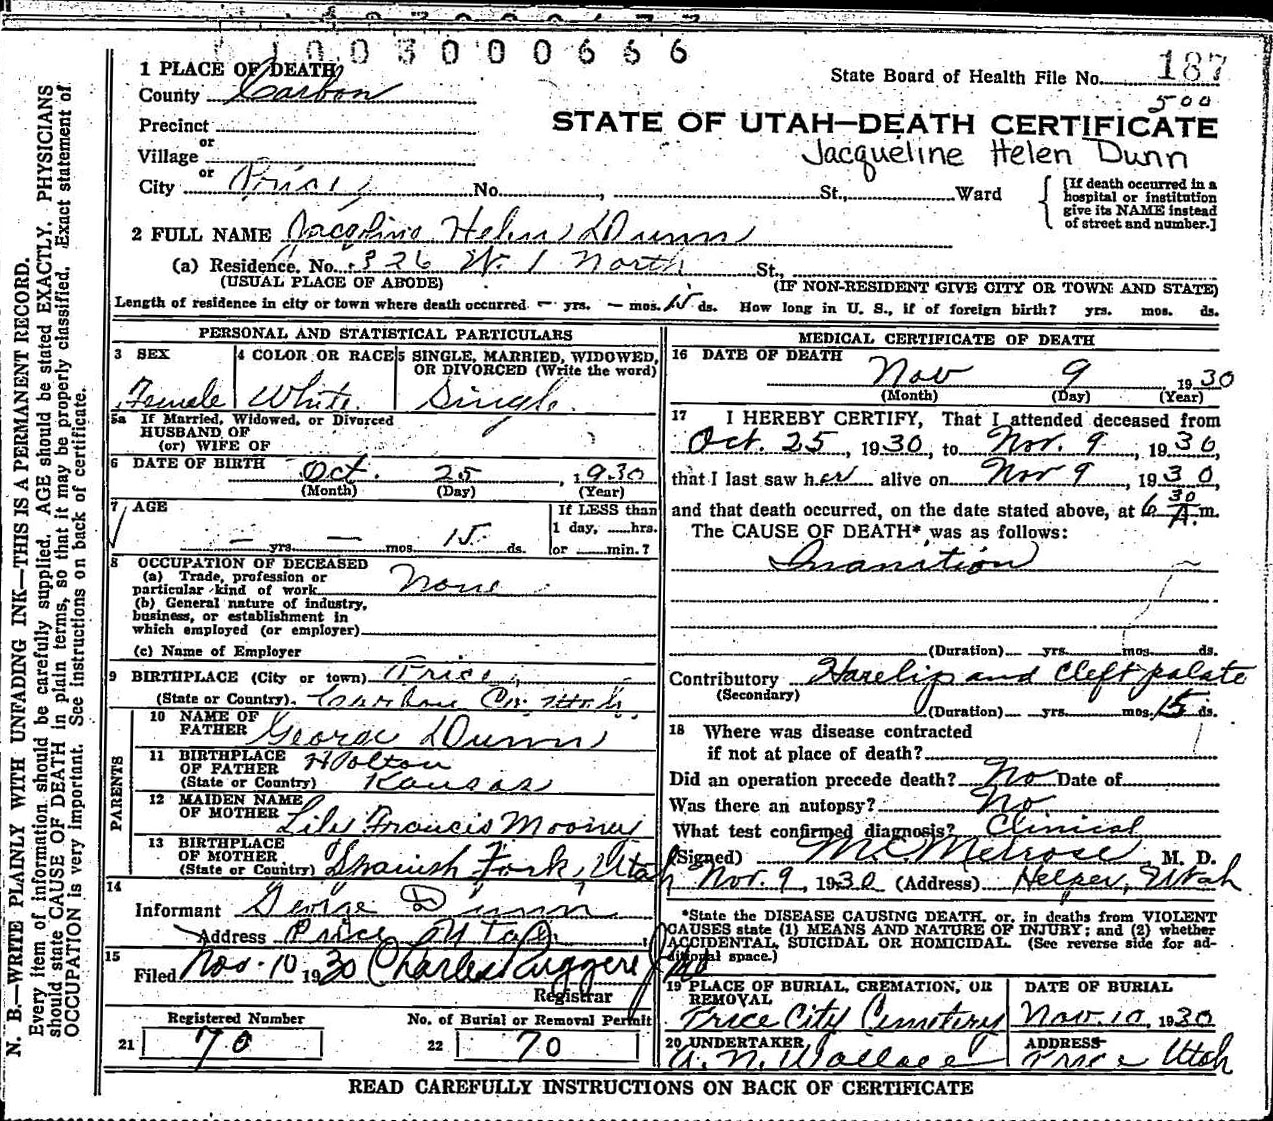 1003000666
1 PLACE OF DEATH
County Carbon
State Board of Health File No. 187
500
Precinct
or
Village
or
City Price, No. , St., Ward
STATE OF UTAH—DEATH CERTIFICATE
Jacqueline Helen Dunn
[If death occurred in a hospital or institution give its NAME instead of street and number.]
2 FULL NAME Jacqline Helen Dunn
(a) Residence. No. 326 W. 1 North St.,
(USUAL PLACE OF ABODE) (IF NON-RESIDENT GIVE CITY OR TOWN AND STATE)
Length of residence in city or town where death occurred — yrs. — mos. 15 ds. How long in U. S., if of foreign birth? yrs. mos. ds.
PERSONAL AND STATISTICAL PARTICULARS
3 SEX 4 COLOR OR RACE 5 SINGLE, MARRIED, WIDOWED, OR DIVORCED (Write the word)
Female White Single
5a If Married, Widowed, or Divorced
HUSBAND OF
(or) WIFE OF
6 DATE OF BIRTH Oct. 25, 1930
(Month) (Day) (Year)
7 AGE If LESS than
1 day, ......hrs.
— yrs. — mos. 15 ds. or ......min.?
8 OCCUPATION OF DECEASED
(a) Trade, profession or
particular kind of work None
(b) General nature of industry,
business, or establishment in
which employed (or employer)
(c) Name of Employer
9 BIRTHPLACE (City or town) Price,
(State or Country). Carbon Co. Utah.
PARENTS
10 NAME OF FATHER George Dunn
11 BIRTHPLACE OF FATHER Holton
(State or Country) Kansas
12 MAIDEN NAME OF MOTHER Lily Francis Mooney
13 BIRTHPLACE OF MOTHER
(State or Country) Spanish Fork, Utah
14
Informant George Dunn
Address Price Utah
15
Filed Nov. 10 1930 Charles Ruggeri Jr MD
Registrar
Registered Number No. of Burial or Removal Permit
21 70 22 70
MEDICAL CERTIFICATE OF DEATH
16 DATE OF DEATH
Nov 9, 1930
(Month) (Day) (Year)
17 I HEREBY CERTIFY, That I attended deceased from
Oct. 25, 1930, to Nov. 9, 1930,
that I last saw her alive on Nov 9, 1930,
and that death occurred, on the date stated above, at 6 30 A.m.
The CAUSE OF DEATH* was as follows:
Inanition
(Duration) yrs. mos. ds.
Contributory Harelip and Cleft palate
(Secondary)
(Duration) yrs. mos. 15 ds.
18 Where was disease contracted
if not at place of death?
Did an operation precede death? No Date of
Was there an autopsy? No
What test confirmed diagnosis? Clinical
(Signed) M.C. Melrose, M. D.
Nov. 9, 1930 (Address) Helper, Utah
*State the DISEASE CAUSING DEATH, or, in deaths from VIOLENT
CAUSES state (1) MEANS AND NATURE OF INJURY; and (2) whether
ACCIDENTAL, SUICIDAL OR HOMICIDAL. (See reverse side for ad-
ditional space.)
19 PLACE OF BURIAL, CREMATION, OR REMOVAL DATE OF BURIAL
Price City Cemetery Nov. 10, 1930
20 UNDERTAKER ADDRESS
A. N. Wallace Price Utah
READ CAREFULLY INSTRUCTIONS ON BACK OF CERTIFICATE
N. B.—WRITE PLAINLY WITH UNFADING INK—THIS IS A PERMANENT RECORD.
Every item of information should be carefully supplied. AGE should be stated EXACTLY. PHYSICIANS
should state CAUSE OF DEATH in plain terms, so that it may be properly classified. Exact statement of
OCCUPATION is very important. See instructions on back of certificate.